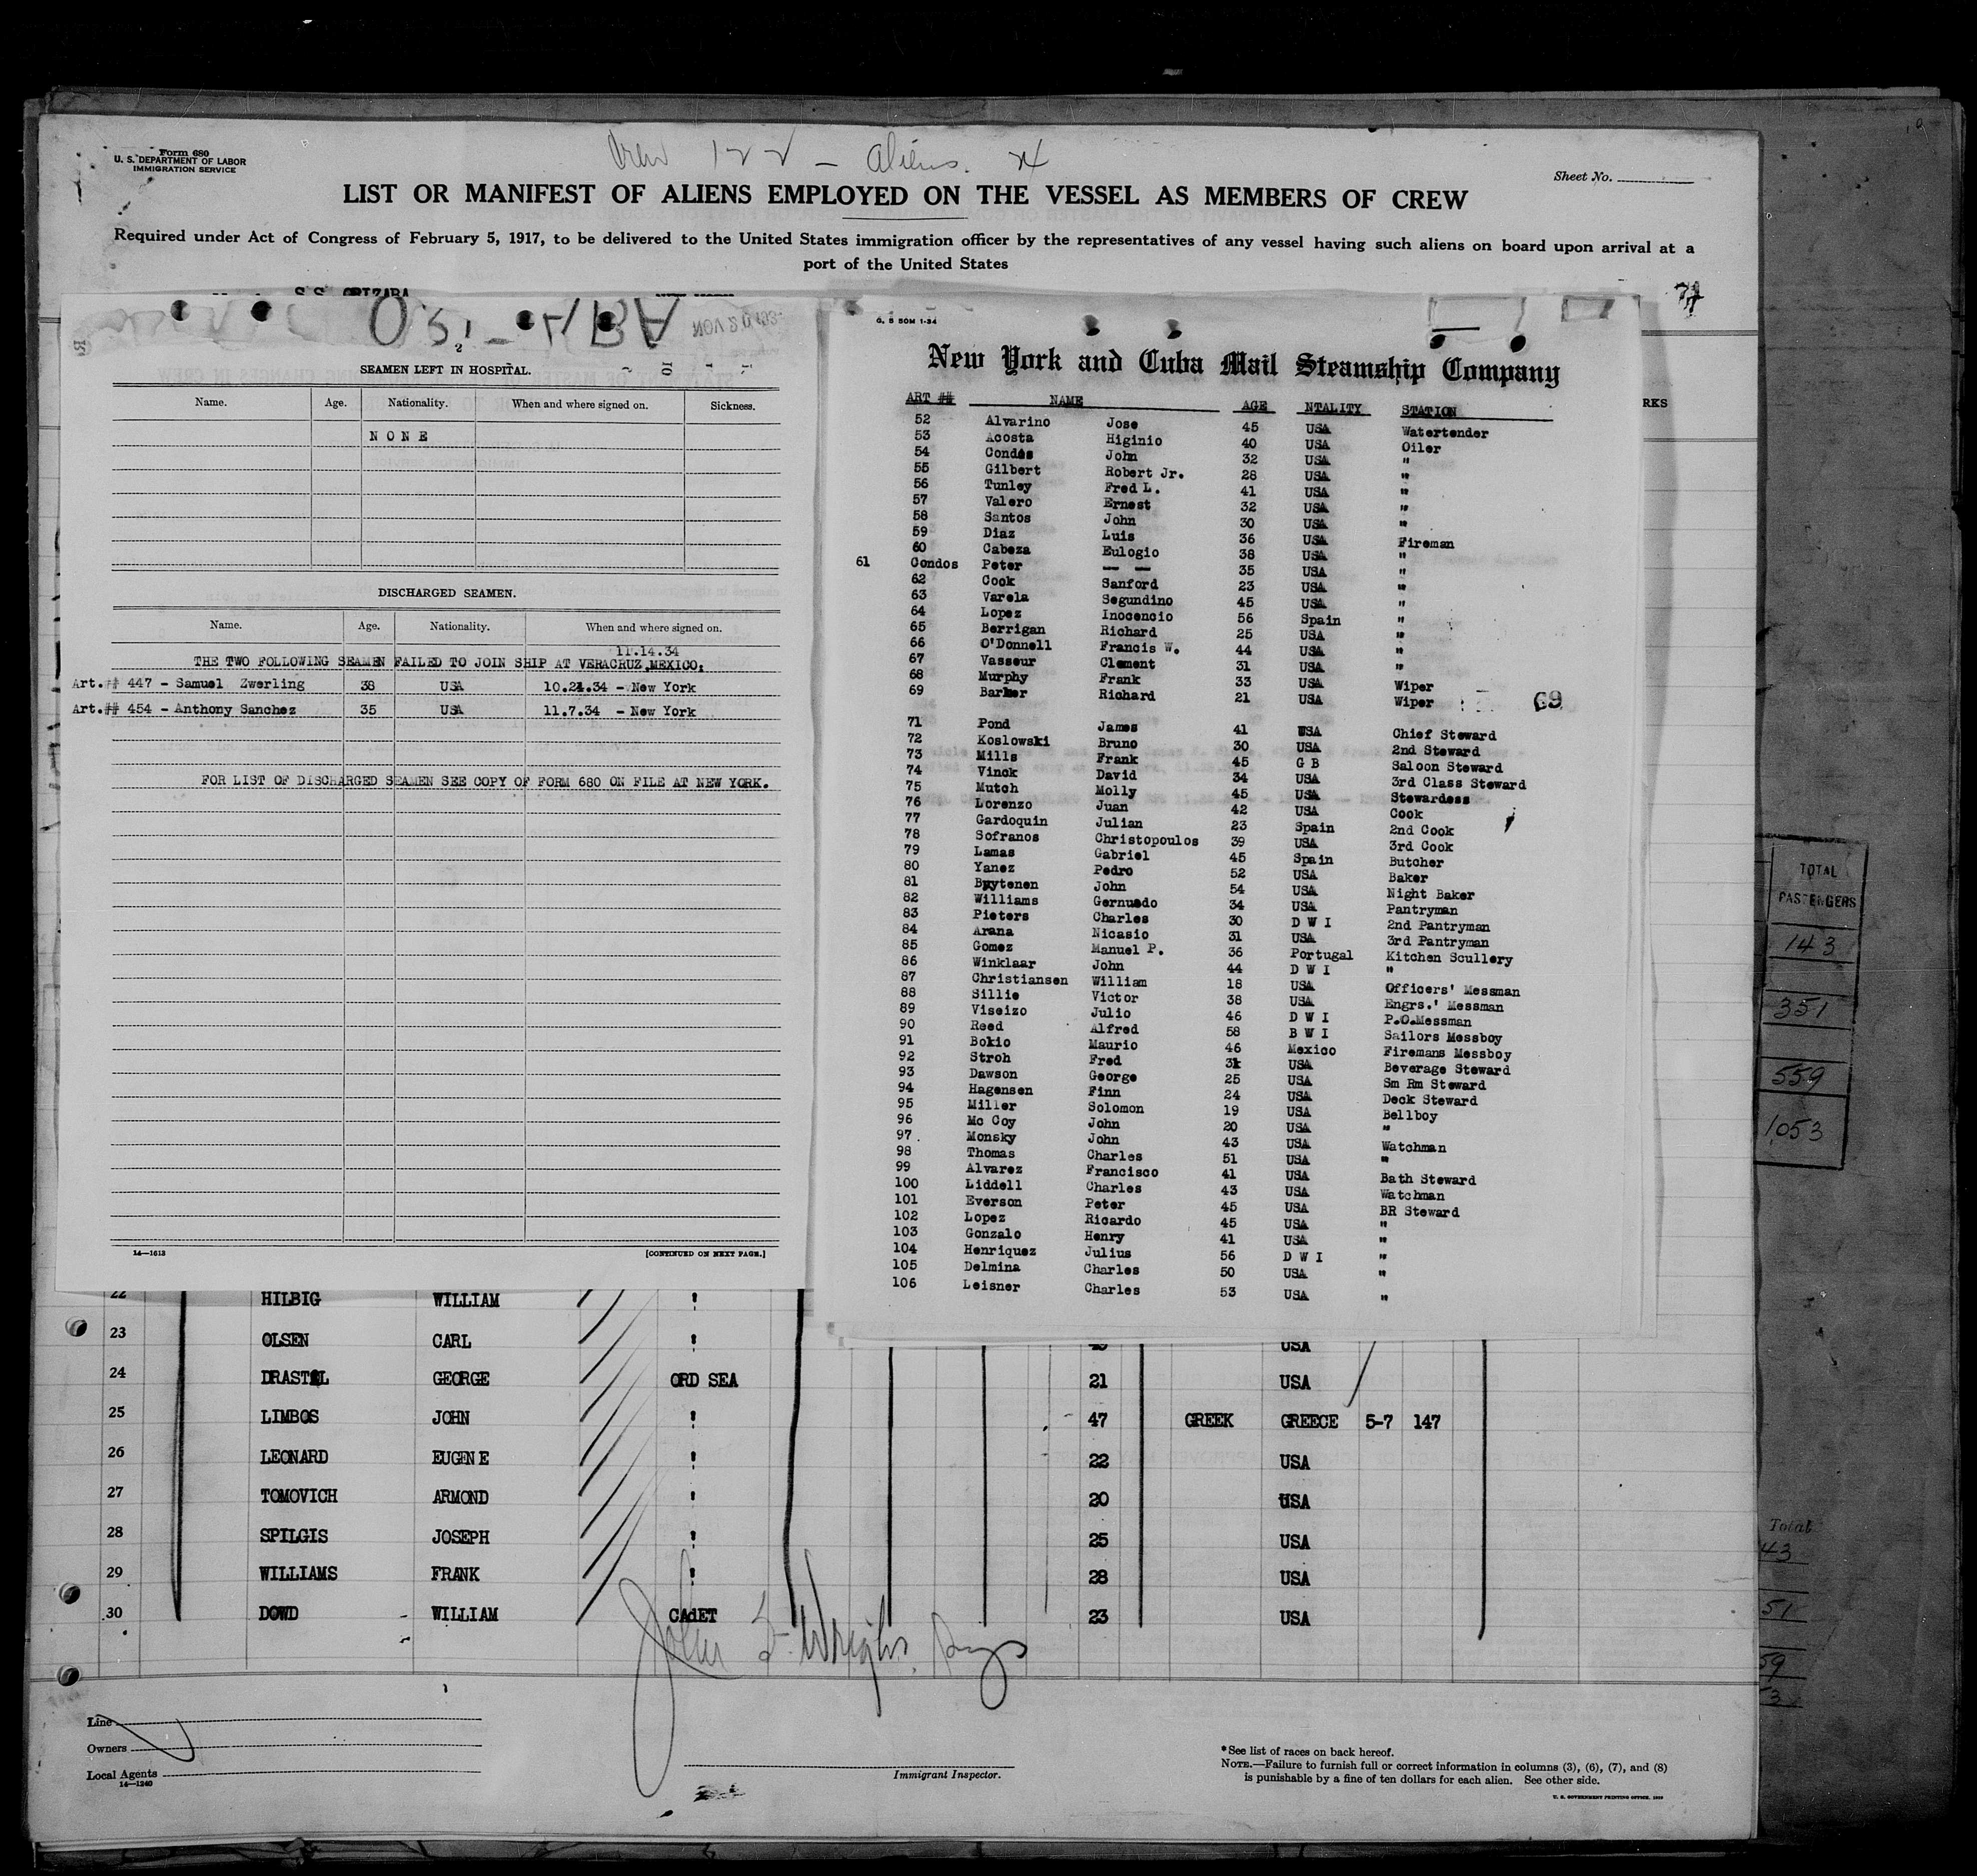 Form 680
U. S. DEPARTMENT OF LABOR
IMMIGRATION SERVICE
Crew 122 - aliens. 24
Sheet No.
LIST OR MANIFEST OF ALIENS EMPLOYED ON THE VESSEL AS MEMBERS OF CREW
Required under Act of Congress of February 5, 1917, to be delivered to the United States immigration officer by the representatives of any vessel having such aliens on board upon arrival at a
port of the United States
S.S. ORIZABA
RKS
NOV 20
2
SEAMEN LEFT IN HOSPITAL.
Name. Age. Nationality. When and where signed on. Sickness.
NONE
DISCHARGED SEAMEN.
Name. Age. Nationality. When and where signed on.
11.14.34
THE TWO FOLLOWING SEAMEN FAILED TO JOIN SHIP AT VERACRUZ,MEXICO:
Art.## 447 - Samuel Zwerling 38 USA 10.24.34 - New York
Art.## 454 - Anthony Sanchez 35 USA 11.7.34 - New York
FOR LIST OF DISCHARGED SEAMEN SEE COPY OF FORM 680 ON FILE AT NEW YORK.
14—1613 [CONTINUED ON NEXT PAGE.]
G. B 50M 1-34
New York and Cuba Mail Steamship Company
ART ## NAME AGE NTALITY STATION
52 Alvarino Jose 45 USA Watertender
53 Acosta Higinio 40 USA Oiler
54 Condos John 32 USA "
55 Gilbert Robert Jr. 28 USA "
56 Tunley Fred L. 41 USA "
57 Valero Ernest 32 USA "
58 Santos John 30 USA "
59 Diaz Luis 36 USA Fireman
60 Cabeza Eulogio 38 USA "
61 Condos Peter — — 35 USA "
62 Cook Sanford 23 USA "
63 Varela Segundino 45 USA "
64 Lopez Inocencio 56 Spain "
65 Berrigan Richard 25 USA "
66 O'Donnell Francis W. 44 USA "
67 Vasseur Clement 31 USA "
68 Murphy Frank 33 USA Wiper
69 Barker Richard 21 USA Wiper 69
71 Pond James 41 USA Chief Steward
72 Koslowski Bruno 30 USA 2nd Steward
73 Mills Frank 45 G B Saloon Steward
74 Vinck David 34 USA 3rd Class Steward
75 Mutch Molly 45 USA Stewardess
76 Lorenzo Juan 42 USA Cook
77 Gardoquin Julian 23 Spain 2nd Cook
78 Sofranos Christopoulos 39 USA 3rd Cook
79 Lamas Gabriel 45 Spain Butcher
80 Yanez Pedro 52 USA Baker
81 Buytenen John 54 USA Night Baker
82 Williams Gernuedo 34 USA Pantryman
83 Pieters Charles 30 D W I 2nd Pantryman
84 Arana Nicasio 31 USA 3rd Pantryman
85 Gomez Manuel P. 36 Portugal Kitchen Scullery
86 Winklaar John 44 D W I "
87 Christiansen William 18 USA Officers' Messman
88 Sillie Victor 38 USA Engrs.' Messman
89 Viseizo Julio 46 D W I P.O.Messman
90 Reed Alfred 58 B W I Sailors Messboy
91 Bokio Maurio 46 Mexico Firemans Messboy
92 Stroh Fred 31 USA Beverage Steward
93 Dawson George 25 USA Sm Rm Steward
94 Hagensen Finn 24 USA Deck Steward
95 Miller Solomon 19 USA Bellboy
96 Mc Coy John 20 USA "
97 Monsky John 43 USA Watchman
98 Thomas Charles 51 USA "
99 Alvarez Francisco 41 USA Bath Steward
100 Liddell Charles 43 USA Watchman
101 Everson Peter 45 USA BR Steward
102 Lopez Ricardo 45 USA "
103 Gonzalo Henry 41 USA "
104 Henriquez Julius 56 D W I "
105 Delmina Charles 50 USA "
106 Leisner Charles 53 USA "
TOTAL
PASSENGERS
143
351
559
1053
22 HILBIG WILLIAM "
23 OLSEN CARL " USA
24 DRASTAL GEORGE ORD SEA 21 USA
25 LIMBOS JOHN " 47 GREEK GREECE 5-7 147
26 LEONARD EUGENE " 22 USA
27 TOMOVICH ARMOND " 20 USA
28 SPILGIS JOSEPH " 25 USA
29 WILLIAMS FRANK " 28 USA
30 DOWD WILLIAM CAdET 23 USA
Total
43
51
59
3
Line
Owners
Local Agents
14—1240
Immigrant Inspector.
*See list of races on back hereof.
NOTE.—Failure to furnish full or correct information in columns (3), (6), (7), and (8)
is punishable by a fine of ten dollars for each alien. See other side.
U. S. GOVERNMENT PRINTING OFFICE